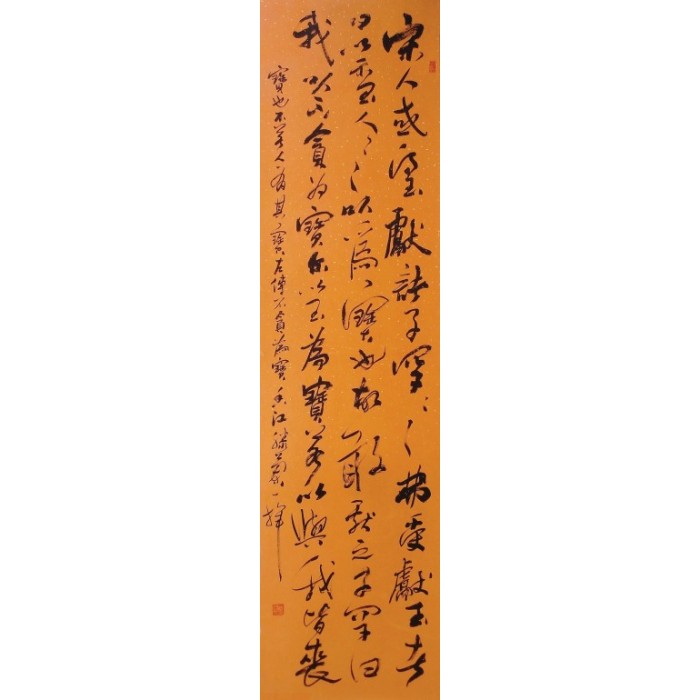 宋人或得玉獻諸子罕〻〻弗受獻玉者
曰以示玉人〻〻以為寶也故敢獻之子罕曰
我以不貪為寶尔以玉為寶若以與我皆喪
寶也不若人有其寶左傳不貪為寶香江